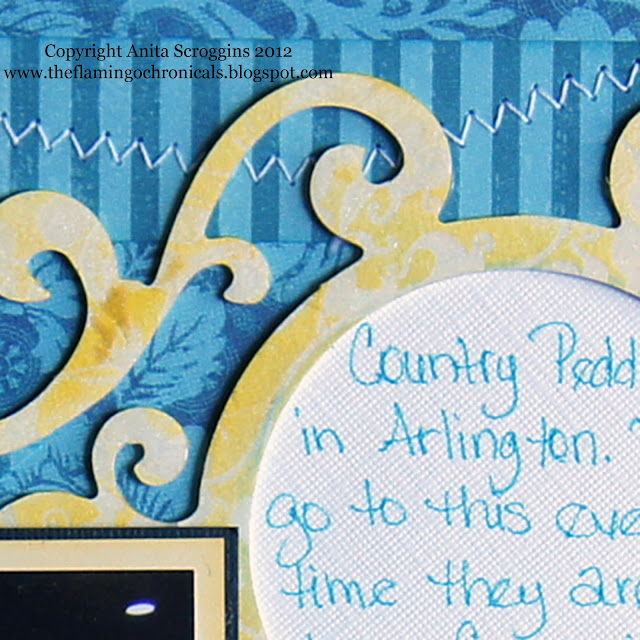 Copyright Anita Scroggins 2012
www.theflamingochronicals.blogspot.com
Country Pedd
in Arlington.
go to this eve
time they are